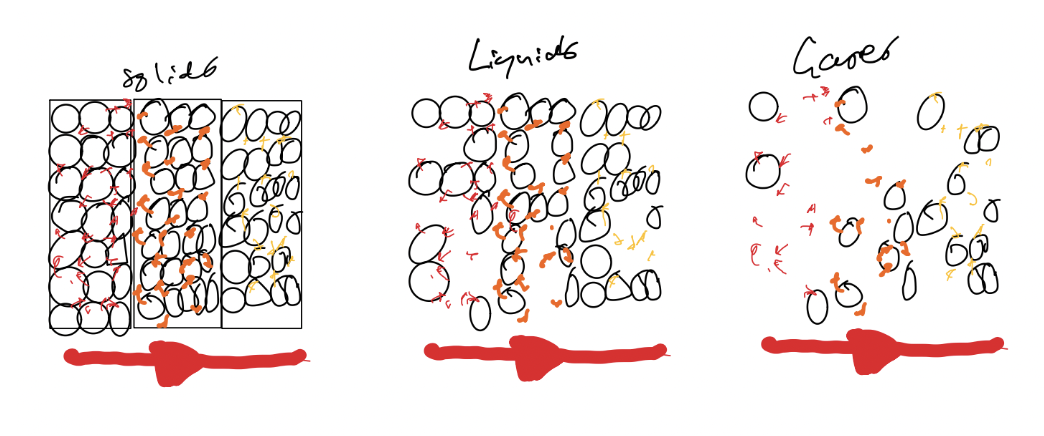 Solids
Liquids
Gases